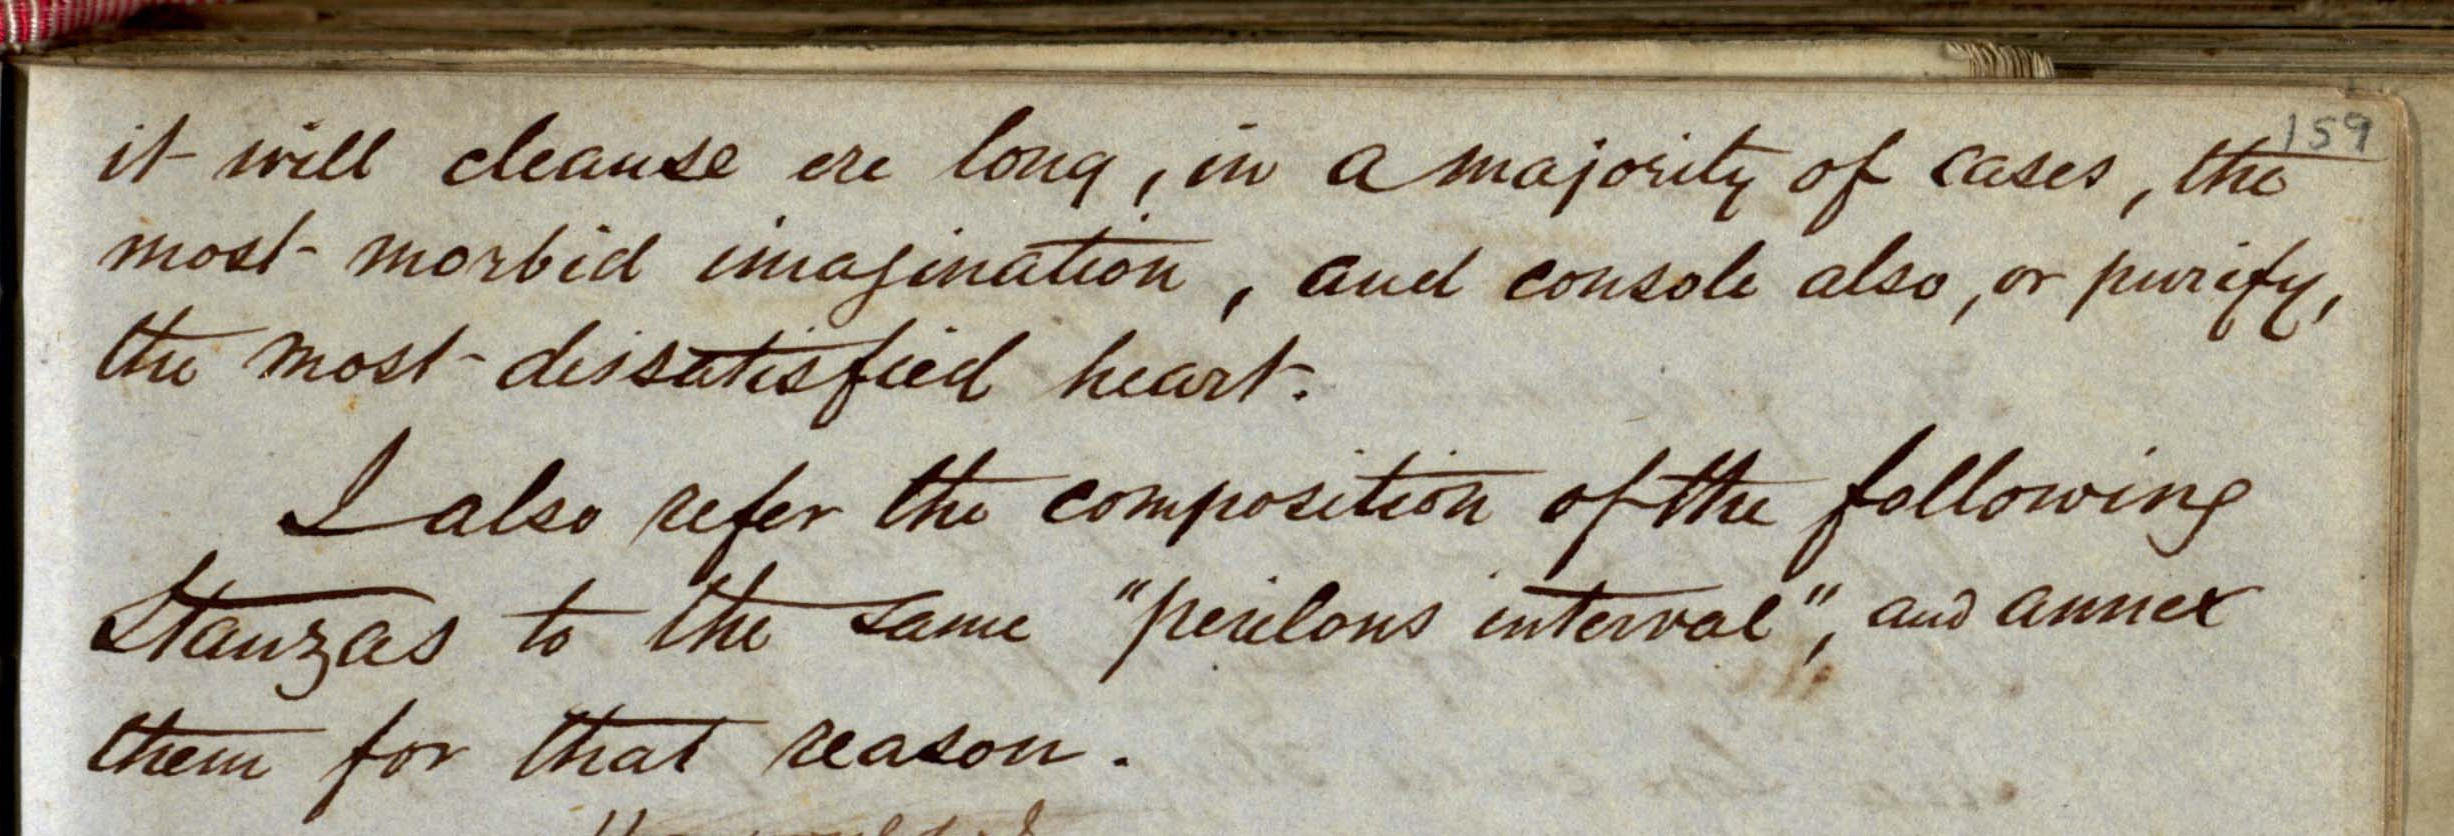 159
it will cleanse ere long, in a majority of cases, the
most morbid imagination, and console also, or purify,
the most dissatisfied heart.
I also refer the composition of the following
Stanzas to the same "perilous interval", and annex
them for that reason.